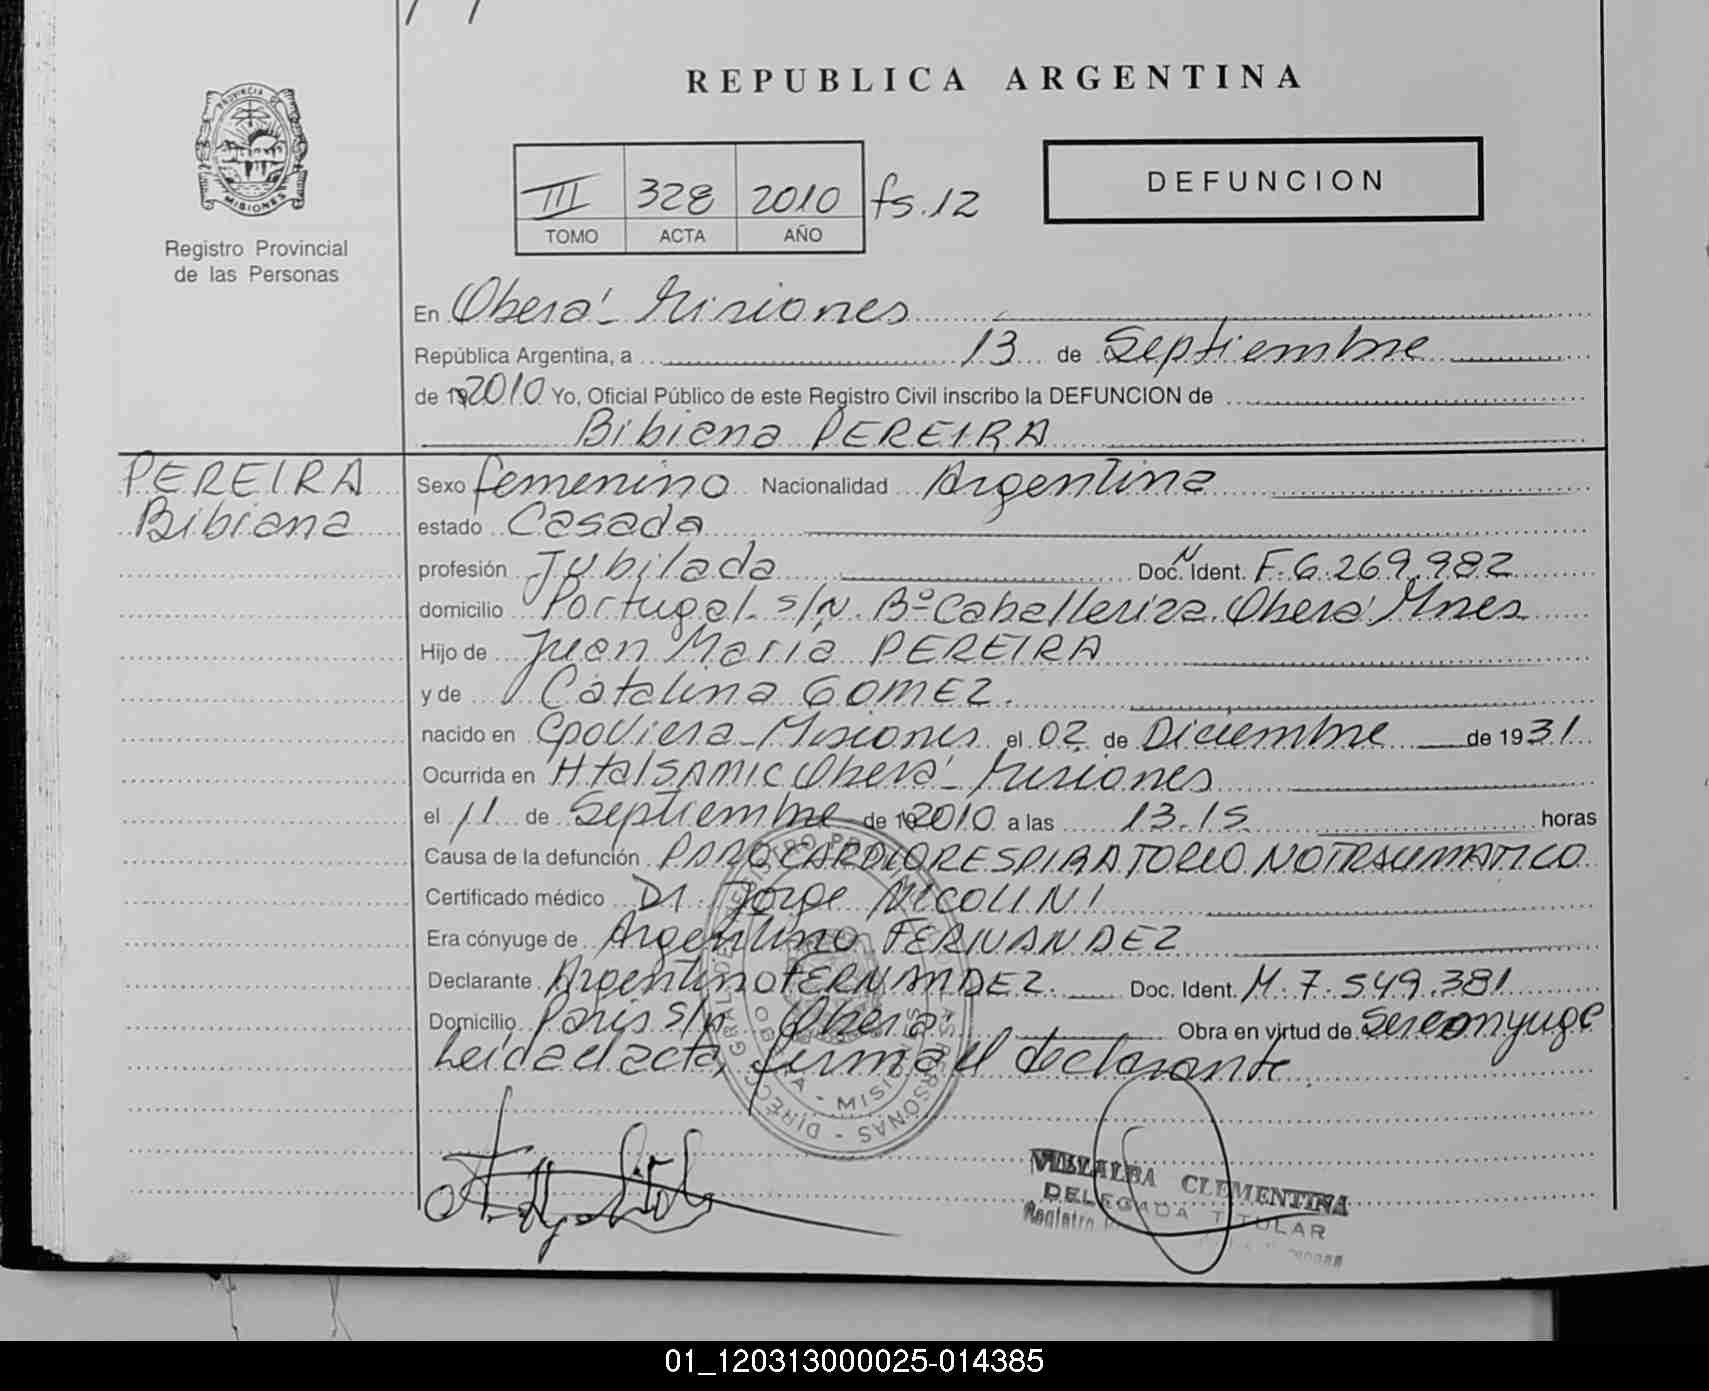 REPUBLICA ARGENTINA
PROVINCIA DE
MISIONES
Registro Provincial
de las Personas
III 328 2010 fs.12
TOMO ACTA AÑO
DEFUNCION
En Oberá - Misiones
República Argentina, a 13 de Septiembre
de 19 2010 Yo, Oficial Público de este Registro Civil inscribo la DEFUNCION de
Bibiana PEREIRA
PEREIRA
Bibiana
Sexo femenino Nacionalidad Argentina
estado Casada
profesión Jubilada Doc. Ident. F.6.269.982
domicilio Portugal s/N. Bº Caballeriza. Oberá Mnes
Hijo de Juan María PEREIRA
y de Catalina GOMEZ.
nacido en CpoViera - Misiones el 02 de Diciembre de 1931
Ocurrida en HtalSAMIC Oberá - Misiones
el 11 de Septiembre de 19 2010 a las 13.15 horas
Causa de la defunción PARO CARDIORESPIRATORIO NO TRAUMATICO
Certificado médico Dr Jorge NICOLINI
Era cónyuge de Argentino FERNANDEZ
Declarante Argentino FERNANDEZ. Doc. Ident. M.7.549.381
Domicilio Paris s/n Oberá Obra en virtud de Ser conyuge
Leida el acta, firma el declarante.
VILLALBA CLEMENTINA
DELEGADA TITULAR
Registro
01_120313000025-014385